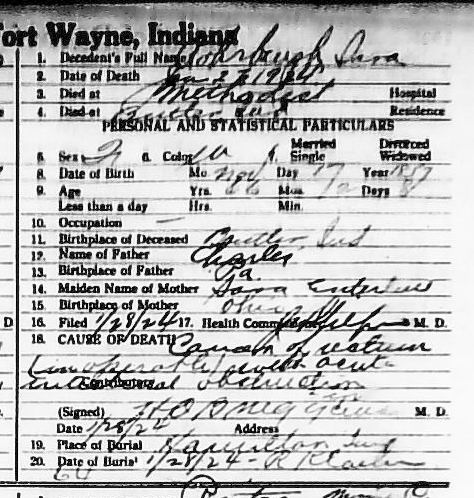 Fort Wayne, Indiana
1. Decedent's Full Name
2. Date of Death Jan 27 1924
3. Died at Methodist Hospital
4. Died at Residence
PERSONAL AND STATISTICAL PARTICULARS
5. Sex F 6. Color W 7. Married Single Divorced Widowed
8. Date of Birth Mo Nov Day 17 Year 1857
9. Age Yrs. 66 Mos. Days
Less than a day Hrs. Min.
10. Occupation —
11. Birthplace of Deceased Butler, Ind
12. Name of Father Charles
13. Birthplace of Father Pa
14. Maiden Name of Mother
15. Birthplace of Mother Ohio
16. Filed 1/28/24 17. Health Commr M. D.
18. CAUSE OF DEATH Cancer of rectum
(inoperable) with acute
Contributory intestinal obstruction
(Signed) M. D.
Date 1/28/24 Address
19. Place of Burial Hamilton Ind
20. Date of Burial 1/28/24 -